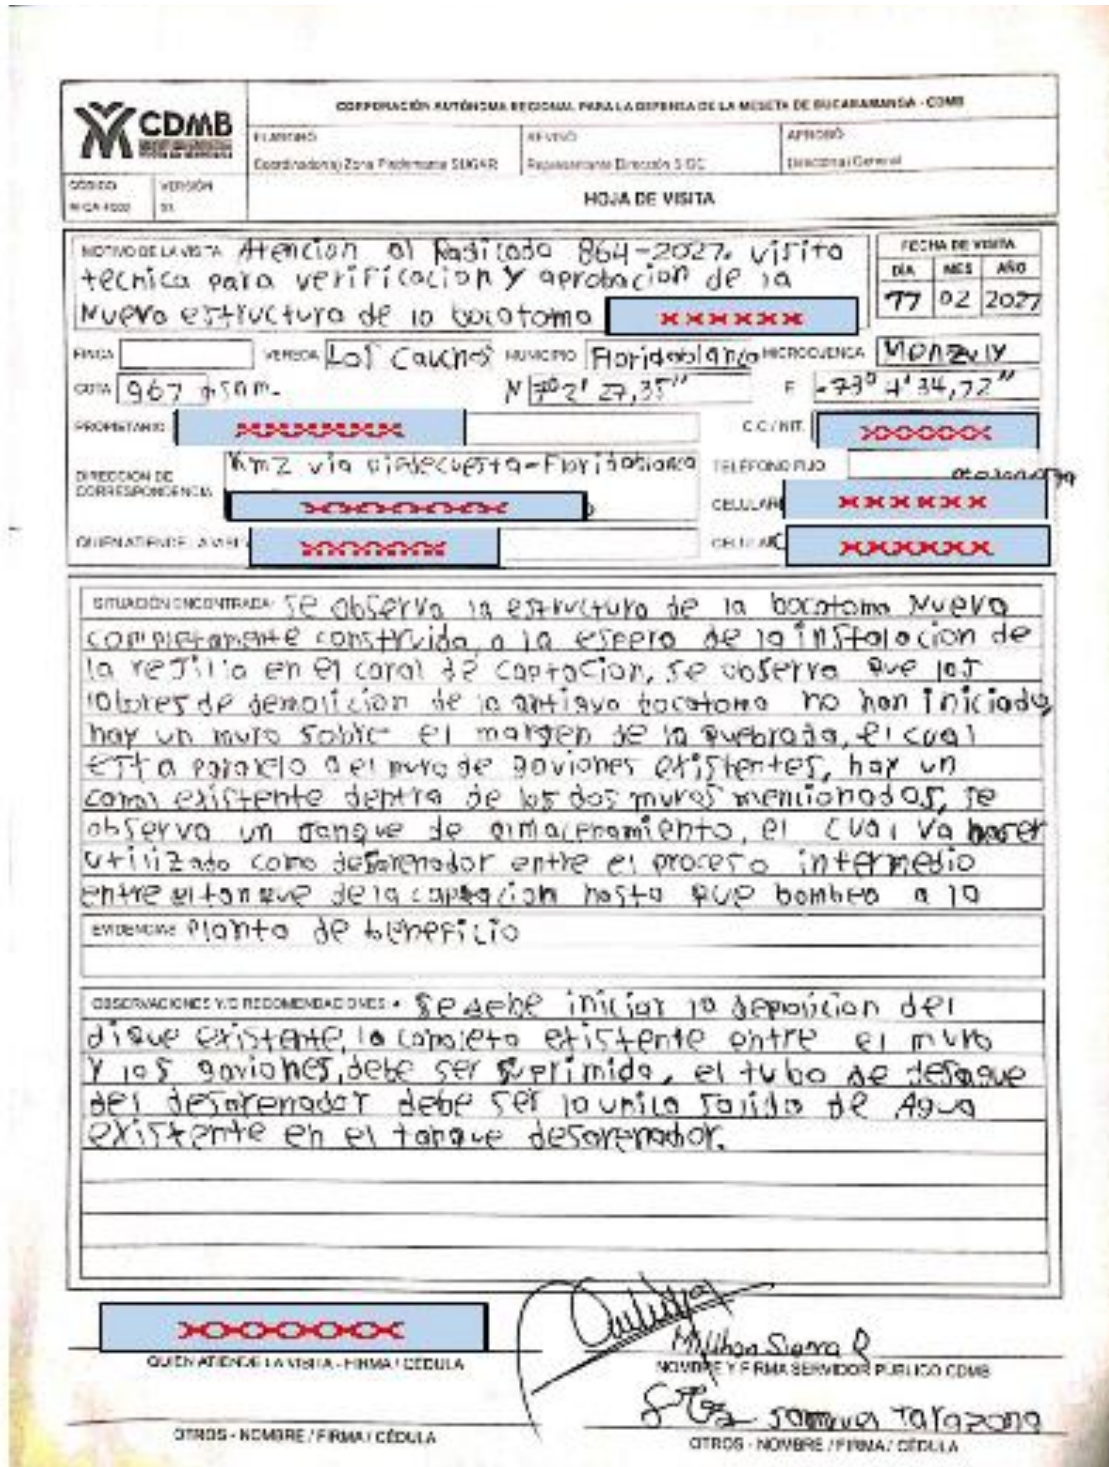 CDMB
CORPORACIÓN AUTÓNOMA REGIONAL PARA LA DEFENSA DE LA MESETA DE BUCARAMANGA - CDMB
ELABORÓ
REVISÓ
APROBÓ
Coordinador(a) Zona Piedemonte SUGAR
Representante Dirección SIGC
Director(a) General
CÓDIGO
VERSIÓN
HOJA DE VISITA
MOTIVO DE LA VISITA Atencion al Radicado 864-2021. visita
tecnica para verificacion y aprobacion de la
Nueva estructura de la bocatoma
FECHA DE VISITA
DÍA MES AÑO
11 02 2021
FINCA VEREDA Los Cauchos MUNICIPIO Floridablanca MICROCUENCA
COTA 967 msnm. N 7º2' 27,35" E -73º 4' 34,72"
PROPIETARIO C.C / NIT.
DIRECCIÓN DE CORRESPONDENCIA Km2 via piedecuesta-Floridablanca TELÉFONO FIJO
CELULAR
QUIEN ATIENDE LA VISITA CELULAR
SITUACIÓN ENCONTRADA: se observa la estructura de la bocatoma Nueva
completamente construida, a la espera de la instalacion de
la rejilla en el canal de captacion, se observa que las
labores de demolicion de la antigua bocatoma no han iniciado,
hay un muro sobre el margen de la quebrada, el cual
esta paralelo a el muro de gaviones existentes, hay un
canal existente dentro de los dos muros mencionados, se
observa un tanque de almacenamiento, el cual va haser
utilizado como desarenador entre el proceso intermedio
entre el tanque de la captacion hasta que bombeo a la
EVIDENCIAS planta de beneficio
OBSERVACIONES Y/O RECOMENDACIONES: • se debe iniciar la demolicion del
dique existente, la canaleta existente entre el muro
y los gaviones, debe ser suprimida, el tubo de desague
del desarenador debe ser la unica salida de Agua
existente en el tanque desarenador.
QUIEN ATIENDE LA VISITA - FIRMA / CÉDULA
Sierra
NOMBRE Y FIRMA SERVIDOR PÚBLICO CDMB
Samuel Tarazona
OTROS - NOMBRE / FIRMA / CÉDULA
OTROS - NOMBRE / FIRMA / CÉDULA